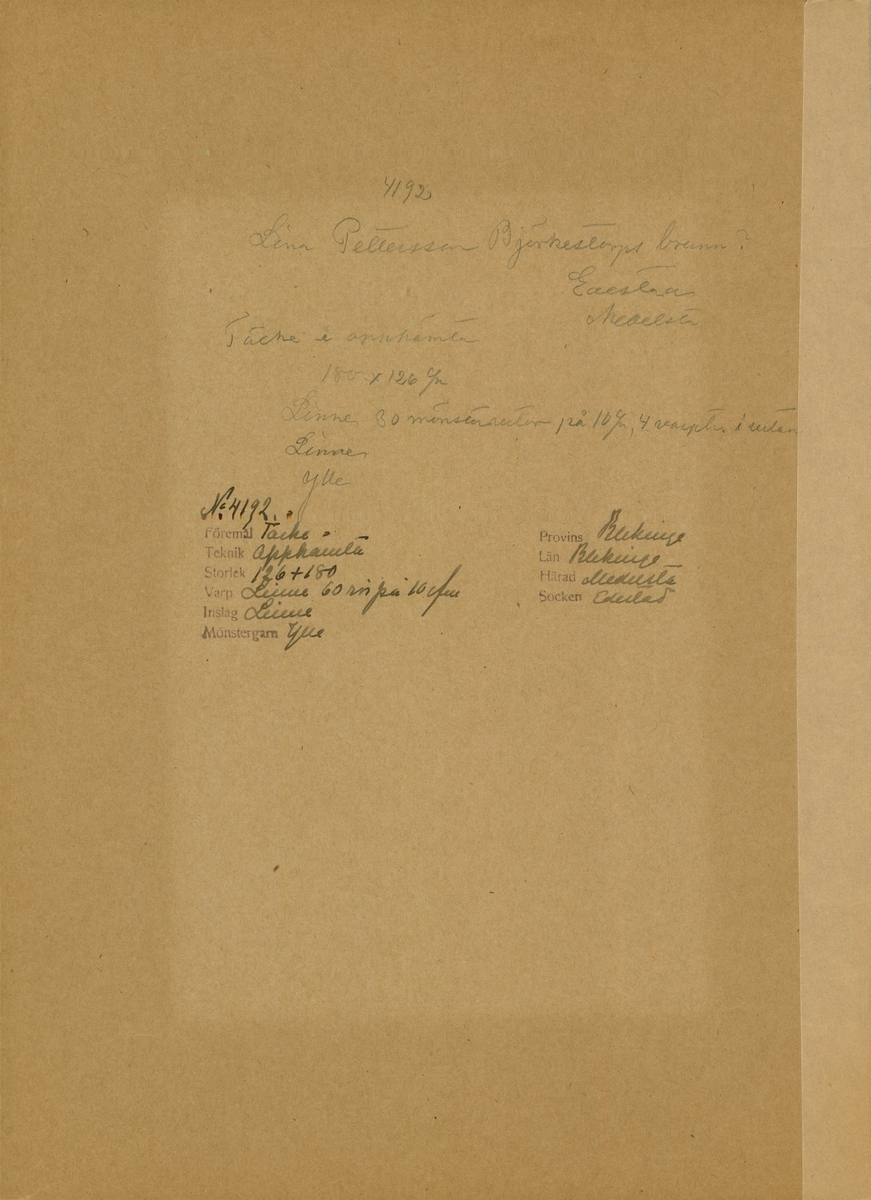 4192
Lina Pettersson Björkestorps brunn?
Edestad
Medelsta
Täcke i opphämta
180 x 126 c/m
Linne 30 mönsterrutor på 10 c/m, 4 varptr. i rutan
Linne
Ylle
No. 4192.
Föremål Täcke
Teknik Opphämta
Storlek 126+180
Varp Linne 60 rör på 10 c/m
Inslag Linne
Mönstergarn Ylle
Provins Blekinge
Län Blekinge
Härad Medelsta
Socken Edestad